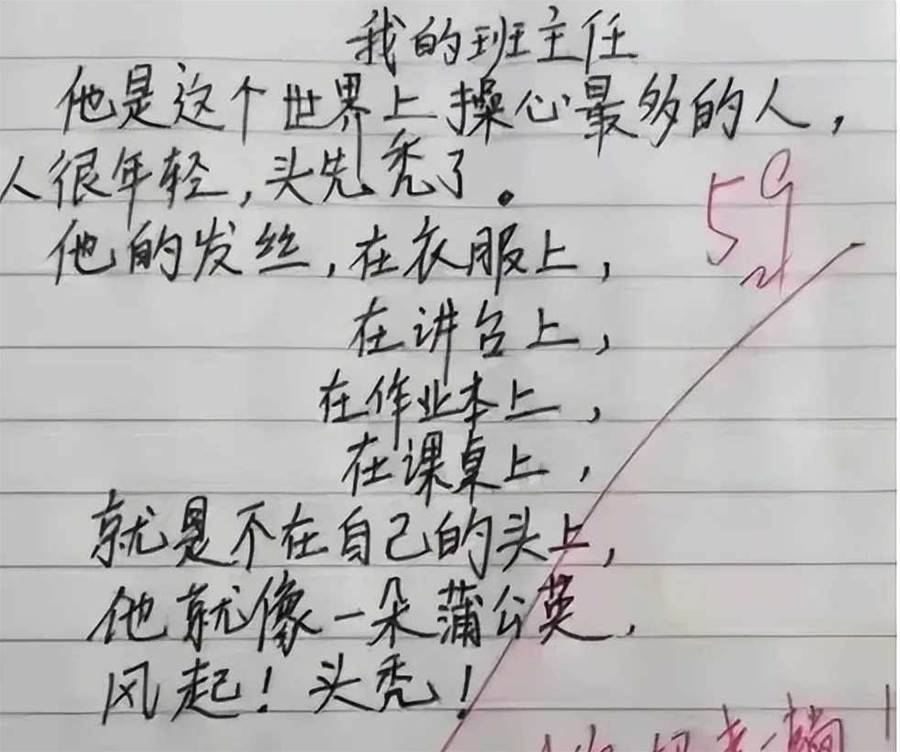 我的班主任
他是这个世界上操心最多的人，
人很年轻，头先秃了。
59
他的发丝，在衣服上，
在讲台上，
在作业本上，
在课桌上，
就是不在自己的头上，
他就像一朵蒲公英，
风起！头秃！